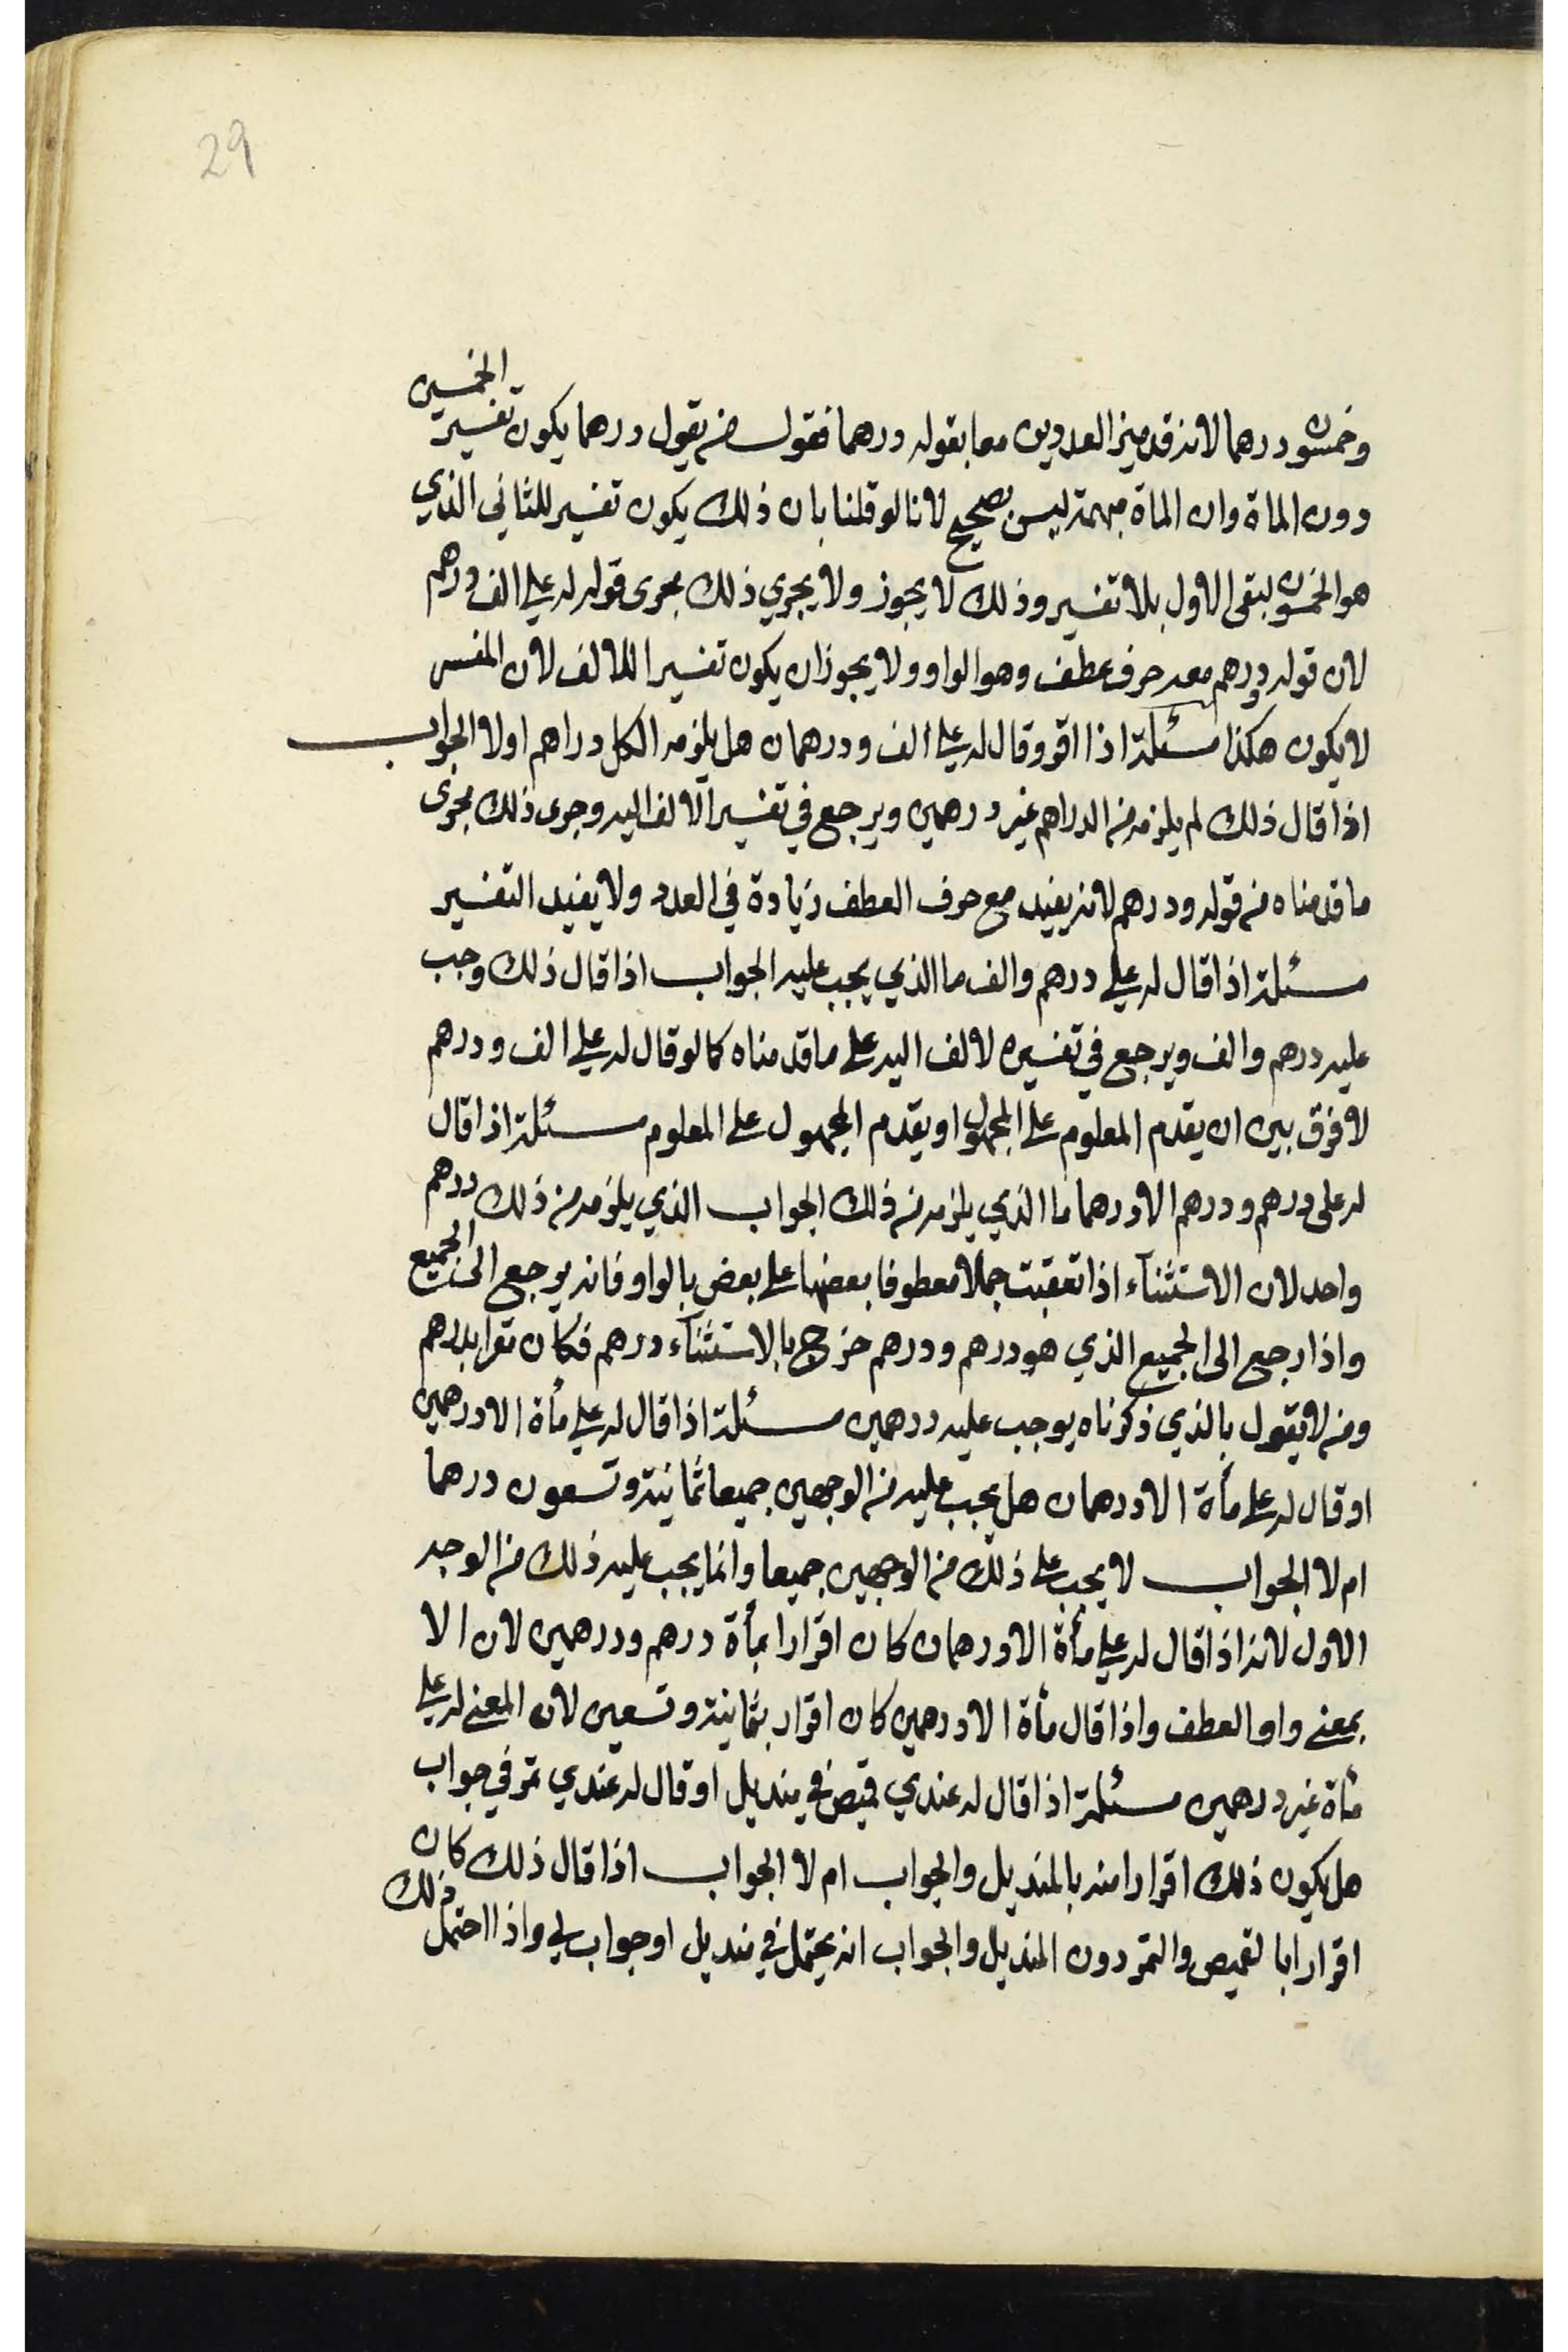 29
وخمسون درهما لانه قد ميز العددين معا بقوله درهما فقول من يقول درهما يكون تفسير الخمسين
دون الماة وان الماة مبهمة ليس بصحيح لانا لو قلنا بان ذلك يكون تفسير للثاني الذي
هو الخمسون لبقى الاول بلا تفسير وذلك لا يجوز ولا يجري ذلك مجرى قوله له علي الف ودرهم
لان قوله ودرهم معه حرف عطف وهو الواو ولا يجوز ان يكون تفسيرا للالف لان المفسر
لا يكون هكذا مسئلة اذا اقر وقال له علي الف ودرهمان هل يلزمه الكل دراهم او لا الجواب
اذا قال ذلك لم يلزمه من الدراهم غير درهمين ويرجع في تفسير الالف اليه وجرى ذلك مجرى
ما قدمناه من قوله ودرهم لانه يفيد مع حرف العطف زيادة في العدد ولا يفيد التفسير
مسئلة اذا قال له علي درهم والف ما الذي يجب عليه الجواب اذا قال ذلك وجب
عليه درهم والف ويرجع في تفسيره لالف اليه على ما قدمناه كما لو قال له علي الف ودرهم
لا فرق بين ان يقدم المعلوم على المجهول او يقدم المجهول على المعلوم مسئلة اذا قال
له على درهم ودرهم الا درهما ما الذي يلزمه من ذلك الجواب الذي يلزمه من ذلك درهم
واحد لان الاستثنآء اذا تعقبت جملا معطوفا بعضها على بعض بالواو فانه يرجع الى الجميع
واذا رجع الى الجميع الذي هو درهم ودرهم خرج بالاستثنآء درهم فكأن مقرا بدرهم
ومن لا يقول بالذي ذكرناه يوجب عليه درهمين مسئلة اذا قال له علي مأة الا درهمين
او قال له علي مأة الا درهمان هل يجب عليه من الوجهين جميعا ثمانية وتسعون درهما
ام لا الجواب لا يجب على ذلك من الوجهين جميعا وانما يجب عليه ذلك من الوجه
الاول لانه اذا قال له علي مأة الا درهمان كان اقرارا بمأة درهم ودرهمين لان الا
بمعنى واو العطف واذا قال مأة الا درهمين كان اقرار بثمانية وتسعين لان المعنى له علي
مأة غير درهمين مسئلة اذا قال له عندي قميص في منديل او قال له عندي تمر في جواب
هل يكون ذلك اقرارا منه بالمنديل والجواب ام لا الجواب اذا قال ذلك كان
اقرارا بالقميص والتمر دون المنديل والجواب انه يحتمل في منديل او جواب لي واذا احتمل ذلك